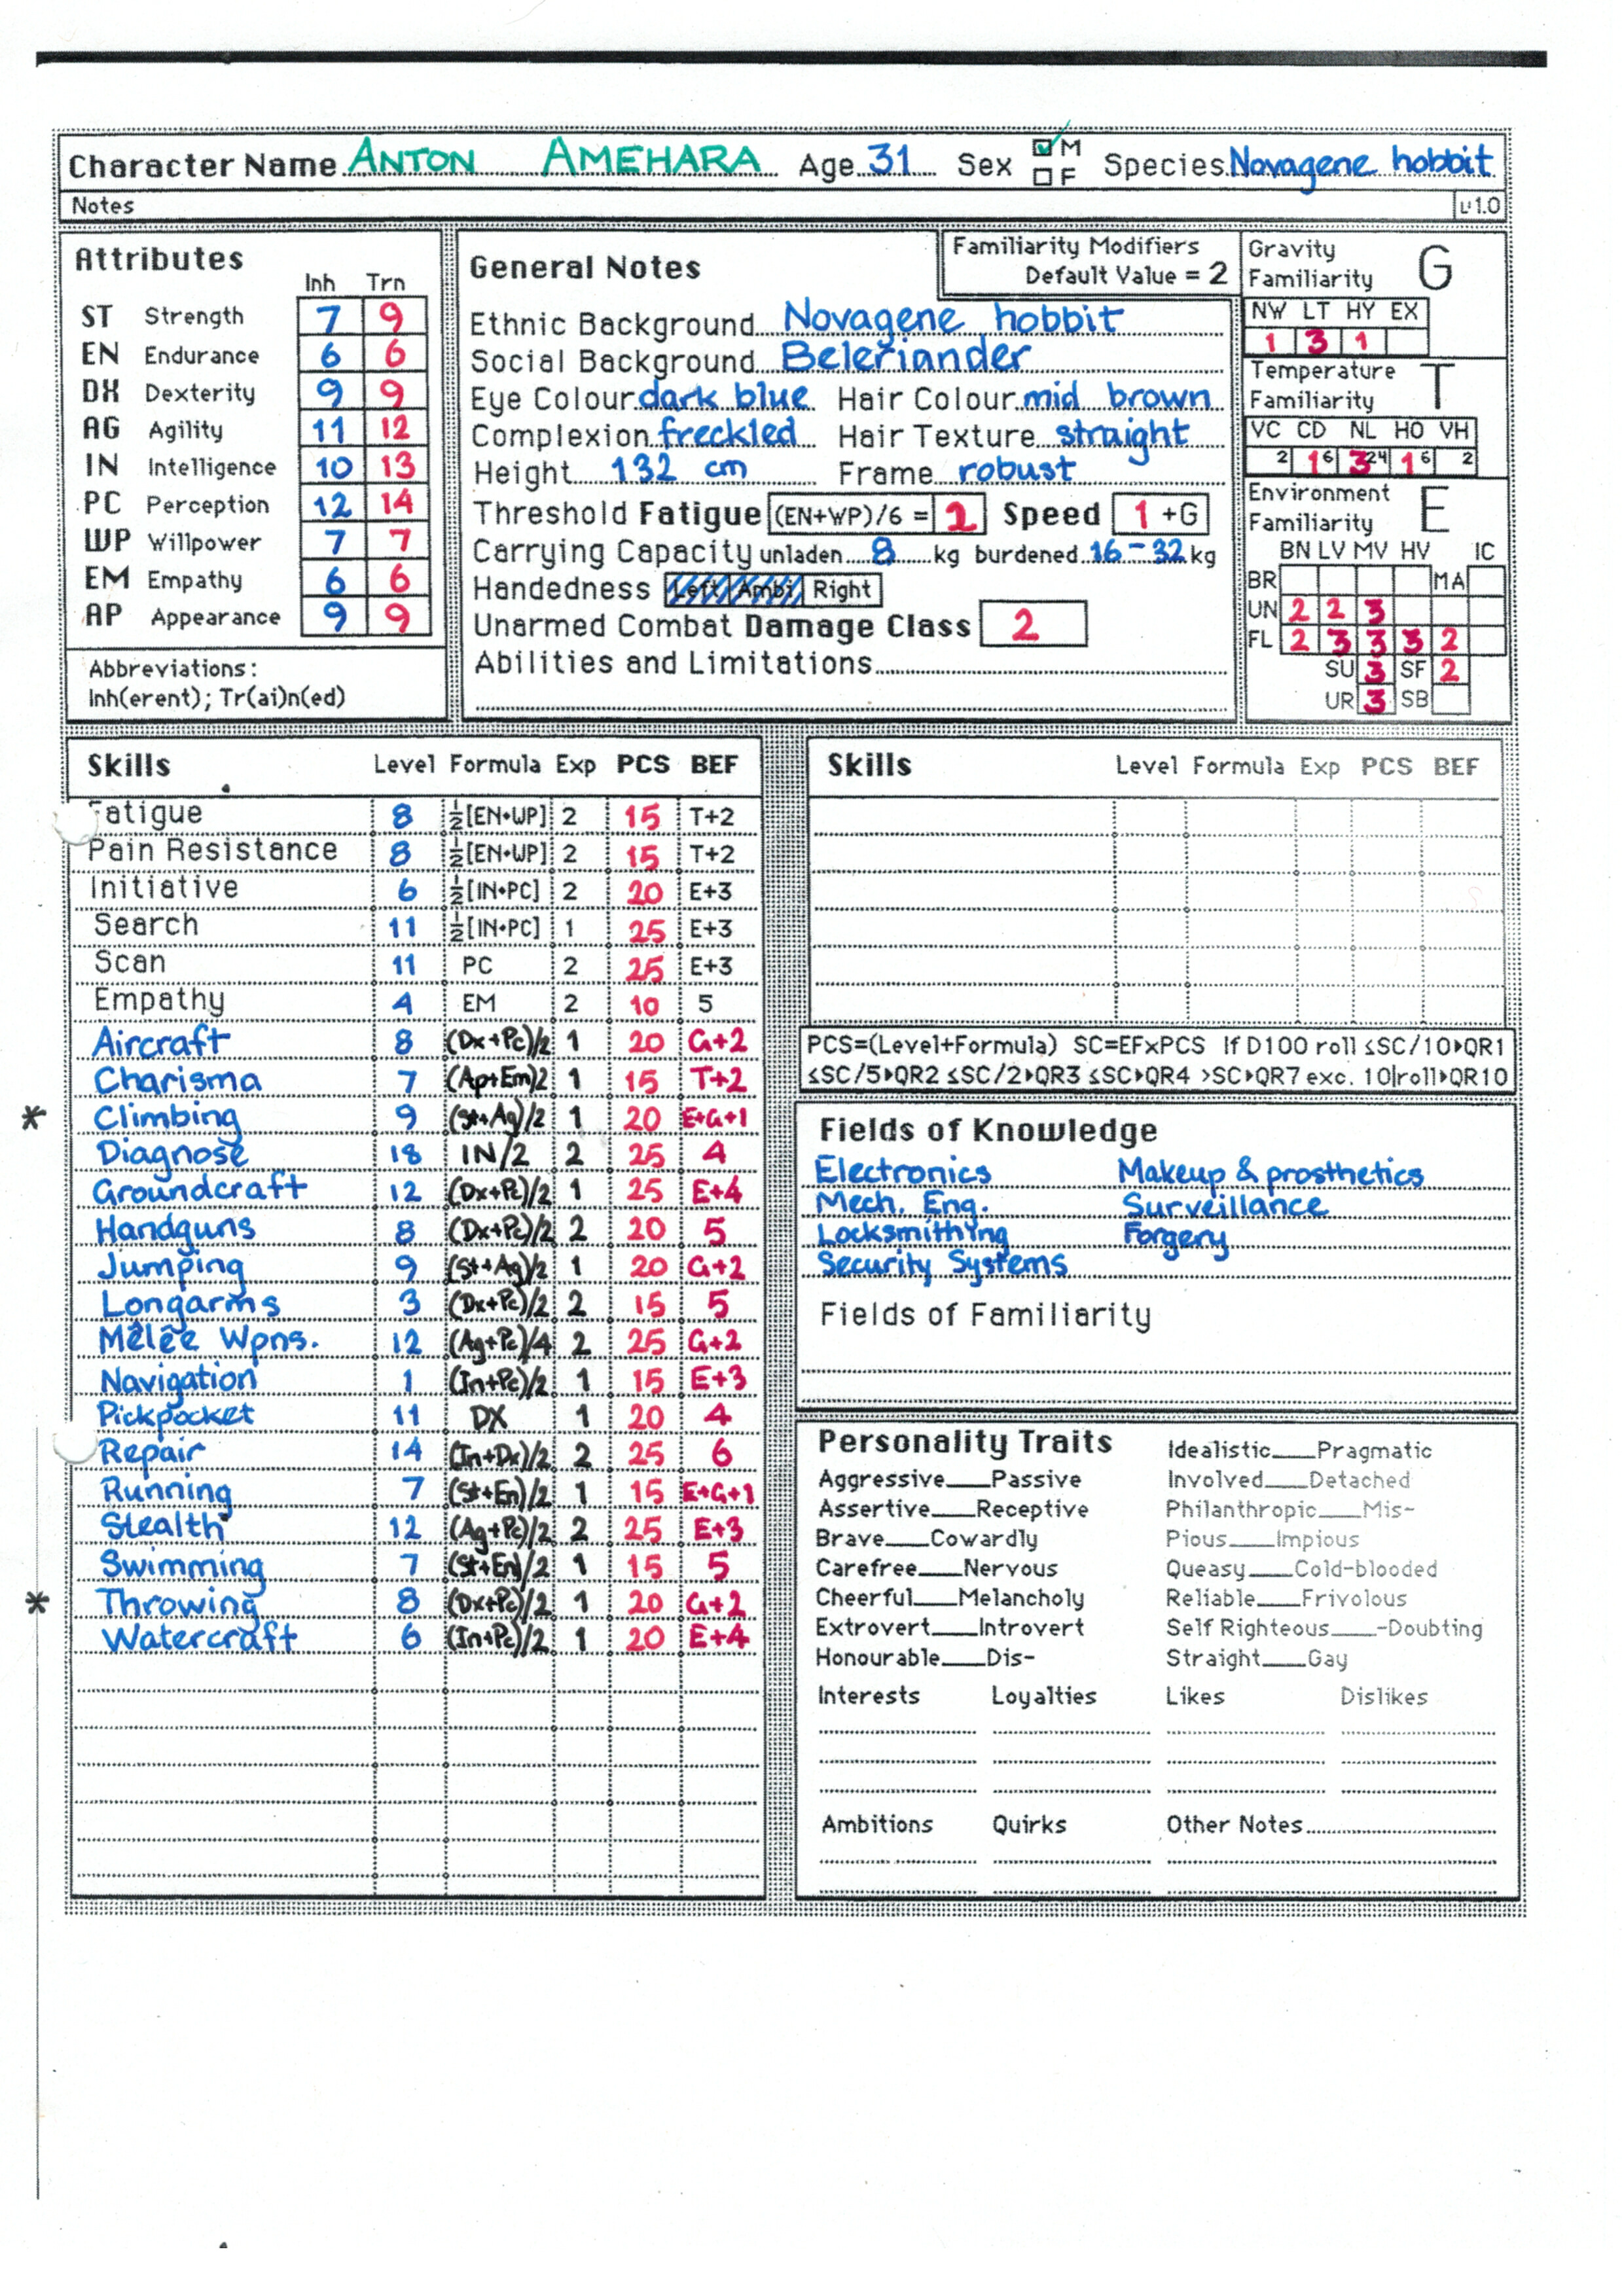 Character Name ANTON AMEHARA Age 31 Sex M F Species Novagene hobbit
Notes v1.0
Attributes
Inh Trn
ST Strength 7 9
EN Endurance 6 6
DX Dexterity 9 9
AG Agility 11 12
IN Intelligence 10 13
PC Perception 12 14
WP Willpower 7 7
EM Empathy 6 6
AP Appearance 9 9
Abbreviations:
Inh(erent); Tr(ai)n(ed)
General Notes
Familiarity Modifiers
Default Value = 2
Ethnic Background Novagene hobbit
Social Background Beleriander
Eye Colour dark blue Hair Colour mid brown
Complexion freckled Hair Texture straight
Height 132 cm Frame robust
Threshold Fatigue (EN+WP)/6 = 2 Speed 1 +G
Carrying Capacity unladen 8 kg burdened 16-32 kg
Handedness Left Ambi Right
Unarmed Combat Damage Class 2
Abilities and Limitations
Gravity
Familiarity G
NW LT HY EX
1 3 1
Temperature
Familiarity T
VC CD NL HO VH
2 1 6 3 24 1 6 2
Environment
Familiarity E
BN LV MV HV IC
BR MA
UN 2 2 3
FL 2 3 3 3 2
SU 3 SF 2
UR 3 SB
Skills Level Formula Exp PCS BEF
Fatigue 8 ½[EN+WP] 2 15 T+2
Pain Resistance 8 ½[EN+WP] 2 15 T+2
Initiative 6 ½[IN+PC] 2 20 E+3
Search 11 ½[IN+PC] 1 25 E+3
Scan 11 PC 2 25 E+3
Empathy 4 EM 2 10 5
Aircraft 8 (Dx+Pc)/2 1 20 G+2
Charisma 7 (Ap+Em)2 1 15 T+2
* Climbing 9 (St+Ag)/2 1 20 E+G+1
Diagnose 18 IN/2 2 25 4
Groundcraft 12 (Dx+Pc)/2 1 25 E+4
Handguns 8 (Dx+Pc)/2 2 20 5
Jumping 9 (St+Ag)/2 1 20 G+2
Longarms 3 (Dx+Pc)/2 2 15 5
Mêlée Wpns. 12 (Ag+Pc)/4 2 25 G+2
Navigation 1 (In+Pc)/2 1 15 E+3
Pickpocket 11 DX 1 20 4
Repair 14 (In+Dx)/2 2 25 6
Running 7 (St+En)/2 1 15 E+G+1
Stealth 12 (Ag+Pc)/2 2 25 E+3
Swimming 7 (St+En)/2 1 15 5
* Throwing 8 (Dx+Pc)/2 1 20 G+2
Watercraft 6 (In+Pc)/2 1 20 E+4
Skills Level Formula Exp PCS BEF
PCS=(Level+Formula) SC=EFxPCS If D100 roll ≤SC/10▸QR1
≤SC/5▸QR2 ≤SC/2▸QR3 ≤SC▸QR4 >SC▸QR7 exc. 10|roll▸QR10
Fields of Knowledge
Electronics Makeup & prosthetics
Mech. Eng. Surveillance
Locksmithing Forgery
Security Systems
Fields of Familiarity
Personality Traits
Aggressive___Passive
Assertive___Receptive
Brave___Cowardly
Carefree___Nervous
Cheerful___Melancholy
Extrovert___Introvert
Honourable___Dis-
Idealistic___Pragmatic
Involved___Detached
Philanthropic___Mis-
Pious___Impious
Queasy___Cold-blooded
Reliable___Frivolous
Self Righteous___-Doubting
Straight___Gay
Interests Loyalties Likes Dislikes
Ambitions Quirks Other Notes